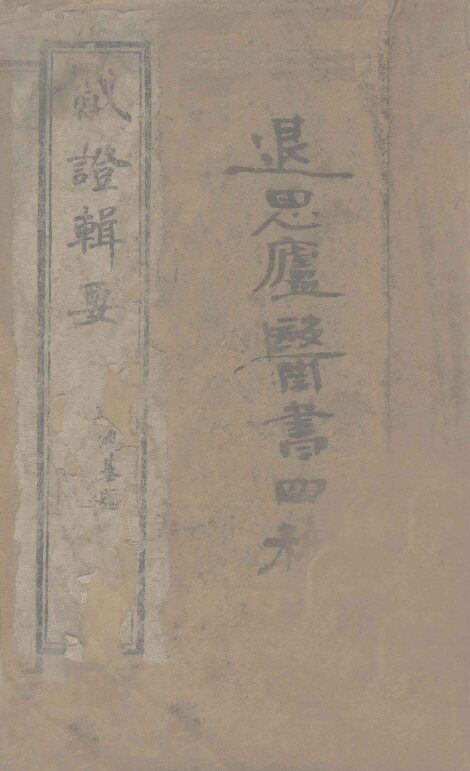 退思廬醫書四種
感證輯要